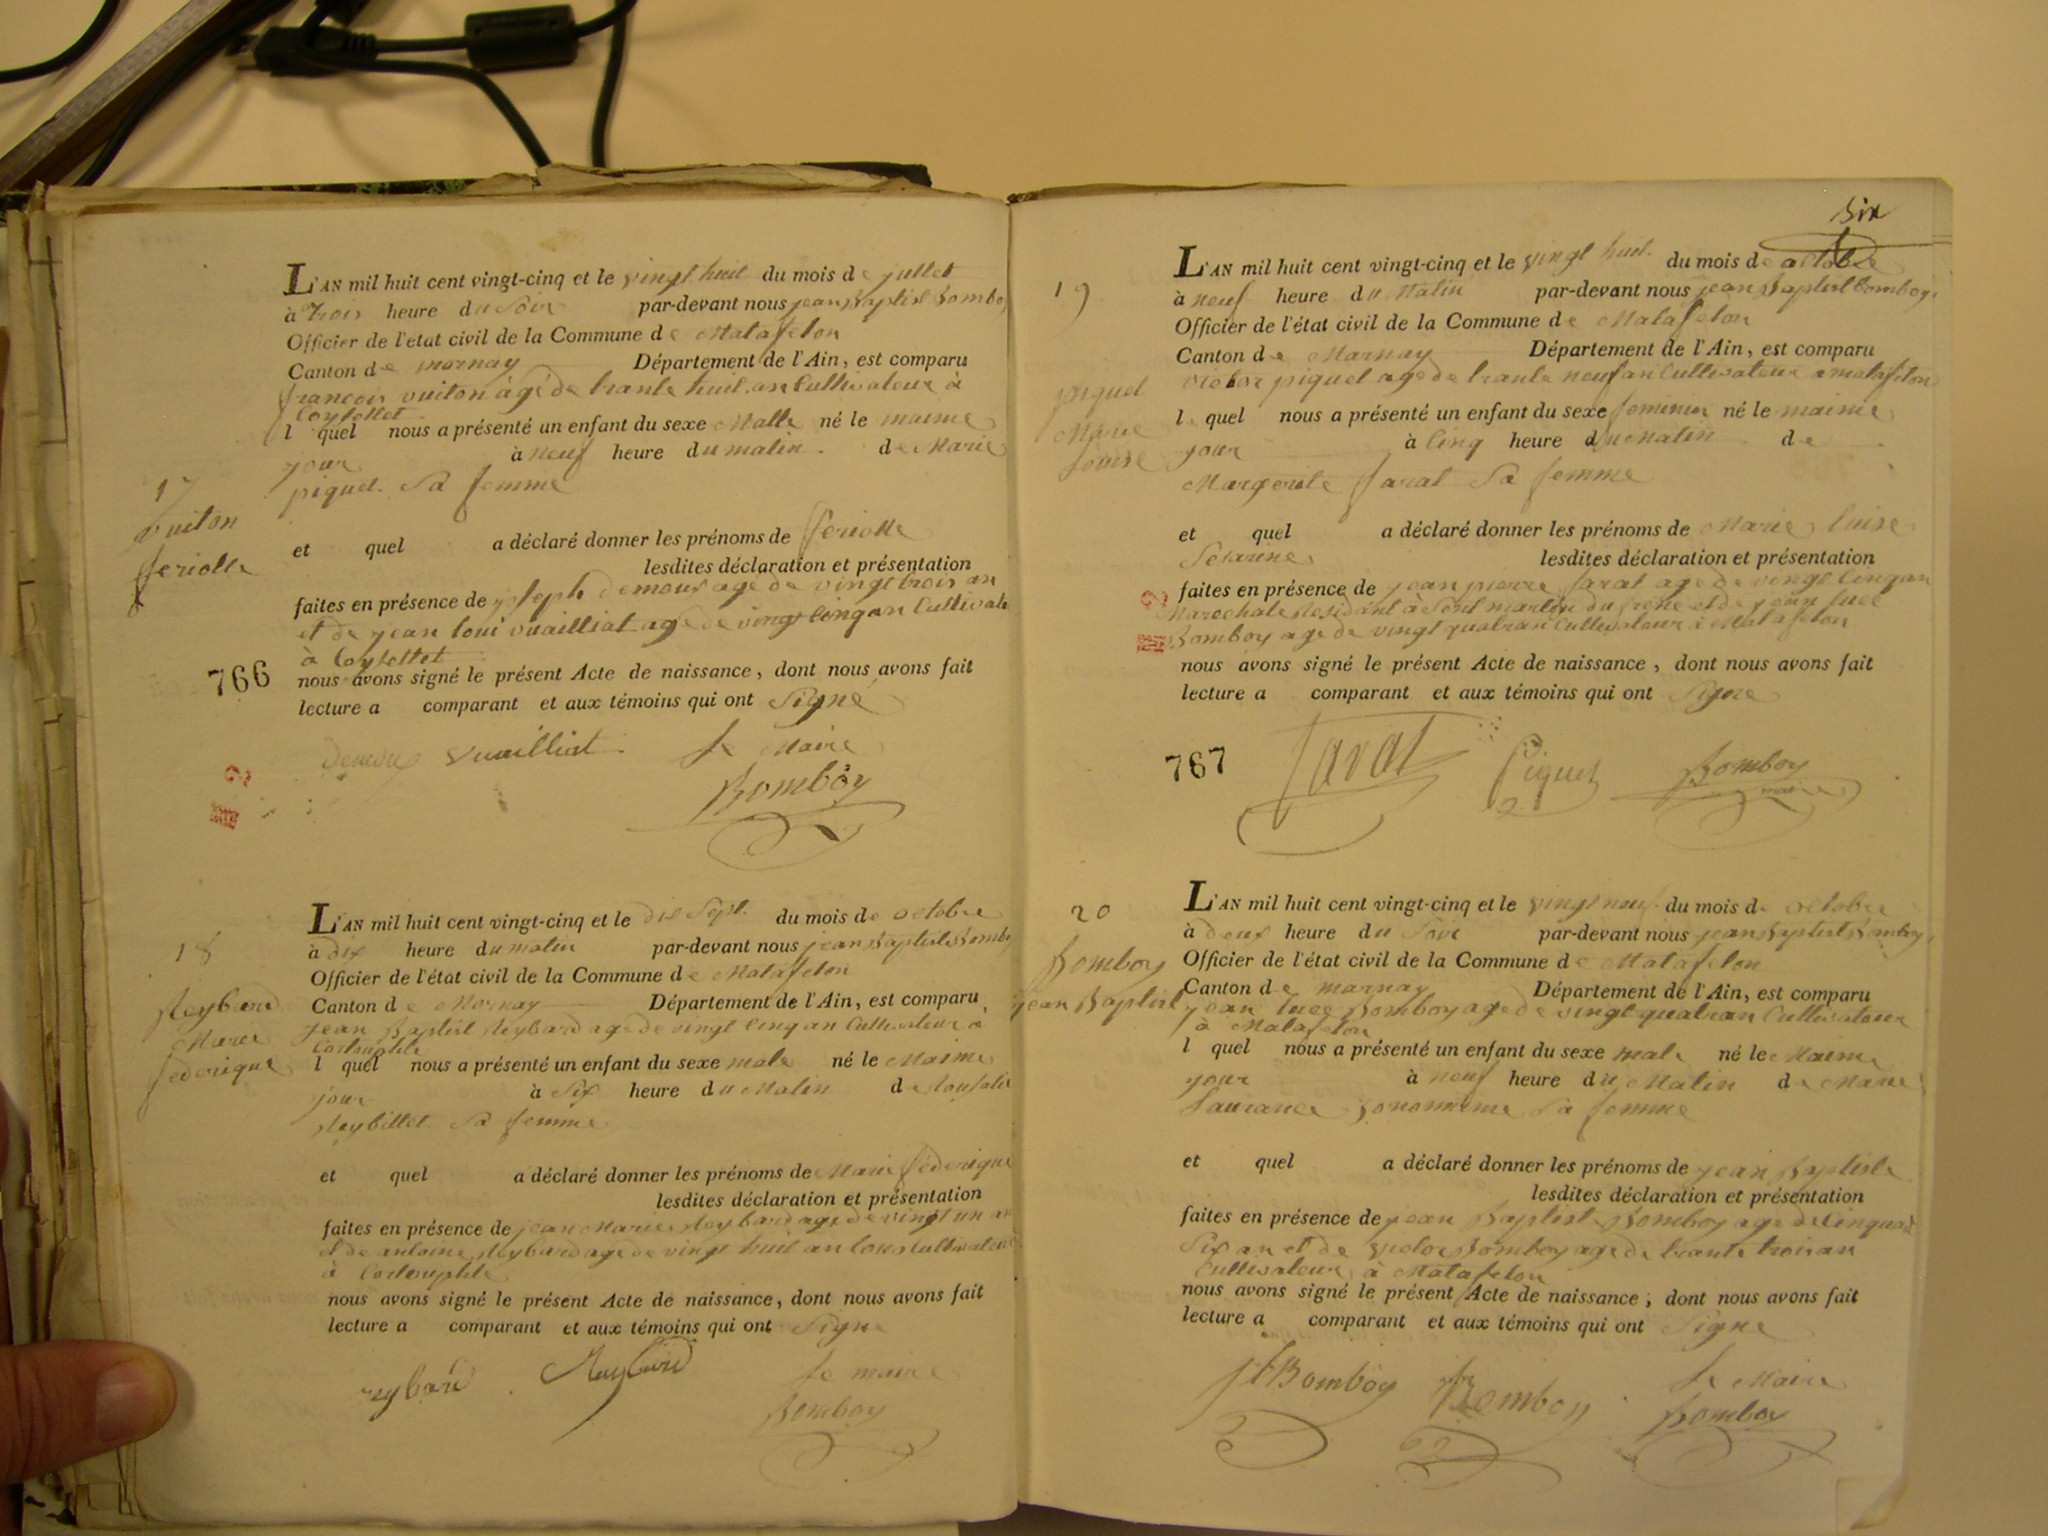 L'AN mil huit cent vingt-cinq et le vingt huit du mois de jullet
à trois heure du Soir par-devant nous jean Baptist Bomboy
Officier de l'état civil de la Commune de Matafelon
Canton de mornay Département de l'Ain, est comparu
francois vuiton àgé de trante huit an Cultivateur à
Coysettet
l quel nous a présenté un enfant du sexe Malle né le maime
jour à neuf heure du matin. de Marie
piquet Sa femme
17
vuiton
fferiolle
et quel a déclaré donner les prénoms de fferiolle
lesdites déclaration et présentation
faites en présence de joseph demoux agé de vingt trois an
et de jean loui vuailliat age de vingt cinq an Cultivate
à Coysettet
766
nous avons signé le présent Acte de naissance, dont nous avons fait
lecture a comparant et aux témoins qui ont Signé
vuailliat Le Maire
Bomboy
18
Reybard
Marie
federique
L'AN mil huit cent vingt-cinq et le dix Sept. du mois de octobre
à dix heure du matin par-devant nous jean Baptist Bomb
Officier de l'état civil de la Commune de Matafelon
Canton de Mornay Département de l'Ain, est comparu
jean Baptist Reybard age de vingt cinq an Cultivateur à
l quel nous a présenté un enfant du sexe male né le Maime
jour à Six heure du Matin de
Reybillet Sa femme
et quel a déclaré donner les prénoms de Marie féderique
lesdites déclaration et présentation
faites en présence de jean Marie Reybard age de vingt un an
et de antoine Reybard age de vingt huit an tous Cultivateur
à
nous avons signé le présent Acte de naissance, dont nous avons fait
lecture a comparant et aux témoins qui ont Signe
reybard Reybard Le maire
Bomboy
Six
19
piquet
Marie
Louise
L'AN mil huit cent vingt-cinq et le vingt huit. du mois de octobre
à neuf heure du Matin par-devant nous jean Baptist Bomboy
Officier de l'état civil de la Commune de Matafelon
Canton de Marnay Département de l'Ain, est comparu
victor piquet age de trante neuf an Cultivateur a matafelon
l quel nous a présenté un enfant du sexe feminin né le maime
jour à Cinq heure du Matin de
Margerite farat Sa femme
et quel a déclaré donner les prénoms de Marie luise
lesdites déclaration et présentation
faites en présence de jean pierre farat age de vingt Cinq an
Marechal Residant à Sent martin du frene et de jean luce
Bomboy age de vingt quatr an Cultivateur à Matafelon
nous avons signé le présent Acte de naissance, dont nous avons fait
lecture a comparant et aux témoins qui ont Signe
767
farat Piquet Bomboy
maire
20
Bomboy
jean Baptist
L'AN mil huit cent vingt-cinq et le vingt neuf du mois de octobre
à deux heure du Soir par-devant nous jean Baptist Bomboy
Officier de l'état civil de la Commune de Matafelon
Canton de marnay Département de l'Ain, est comparu
jean luce Bomboy age de vingt quatr an Cultivateur
à Matafelon
l quel nous a présenté un enfant du sexe male né le Maime
jour à neuf heure du Matin de Marie
Laurance Sa femme
et quel a déclaré donner les prénoms de jean Baptiste
lesdites déclaration et présentation
faites en présence de jean Baptist Bomboy age de Cinquant
Six an et de victor Bomboy age de trante trois an
Cultivateur à Matafelon
nous avons signé le présent Acte de naissance, dont nous avons fait
lecture a comparant et aux témoins qui ont Signe
Bomboy Bomboy Le Maire
Bomboy